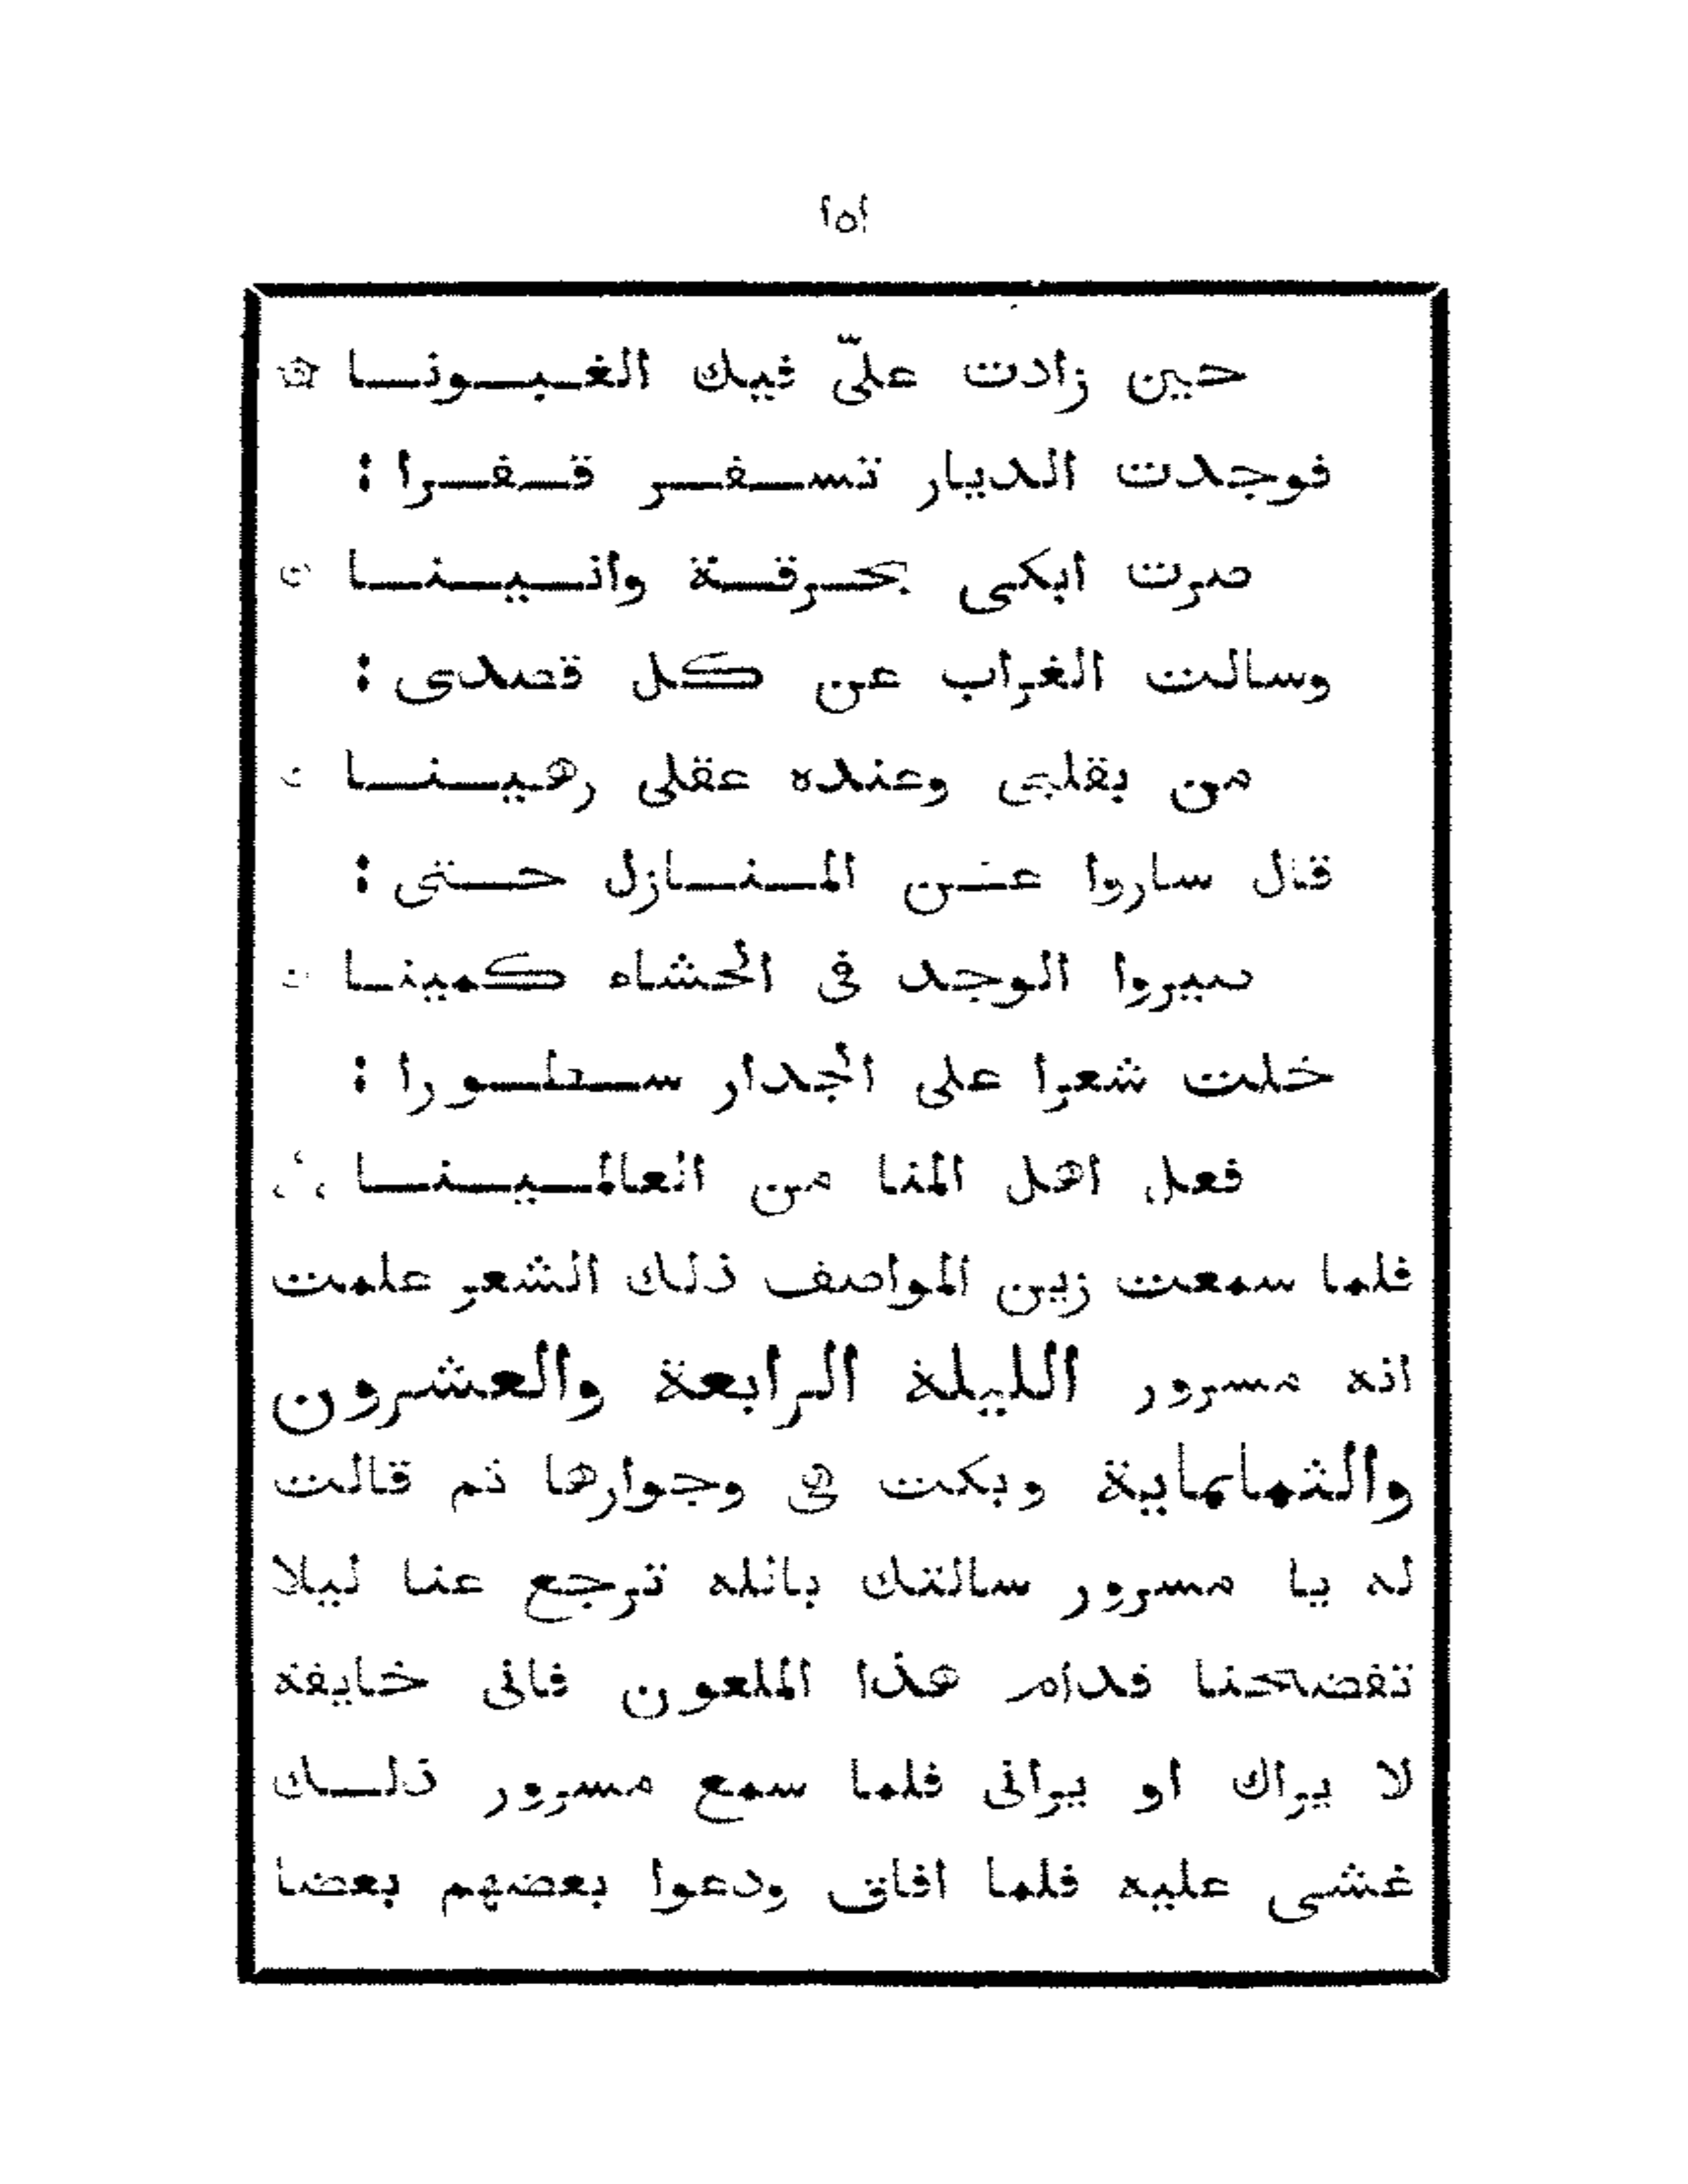 ٢٥٢
حين زادت علىّ فيك الغبونا ۞
فوجدت الديار تسفر قفرا :
صرت ابكى بحرقة وانينا
وسالت الغراب عن كل قصدى :
من بقلبى وعنده عقلى رهينا
قال ساروا عن المنازل حتى :
سيروا الوجد فى الحشاه كمينا
خلت شعرا على الجدار سطورا :
فعل اهل المنا من العالمينا
فلما سمعت زين المواصف ذلك الشعر علمت
انه مسرور الليلة الرابعة والعشرون
والثمانماية وبكت هى وجوارها ثم قالت
له يا مسرور سالتك بالله ترجع عنا ليلا
تفضحنا قدام هذا الملعون فانى خايفة
لا يراك او يرانى فلما سمع مسرور ذلك
غشى عليه فلما افاق ودعوا بعضهم بعضا